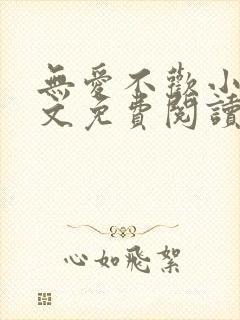 無愛不歡小
文免費閱讀
心如飛絮